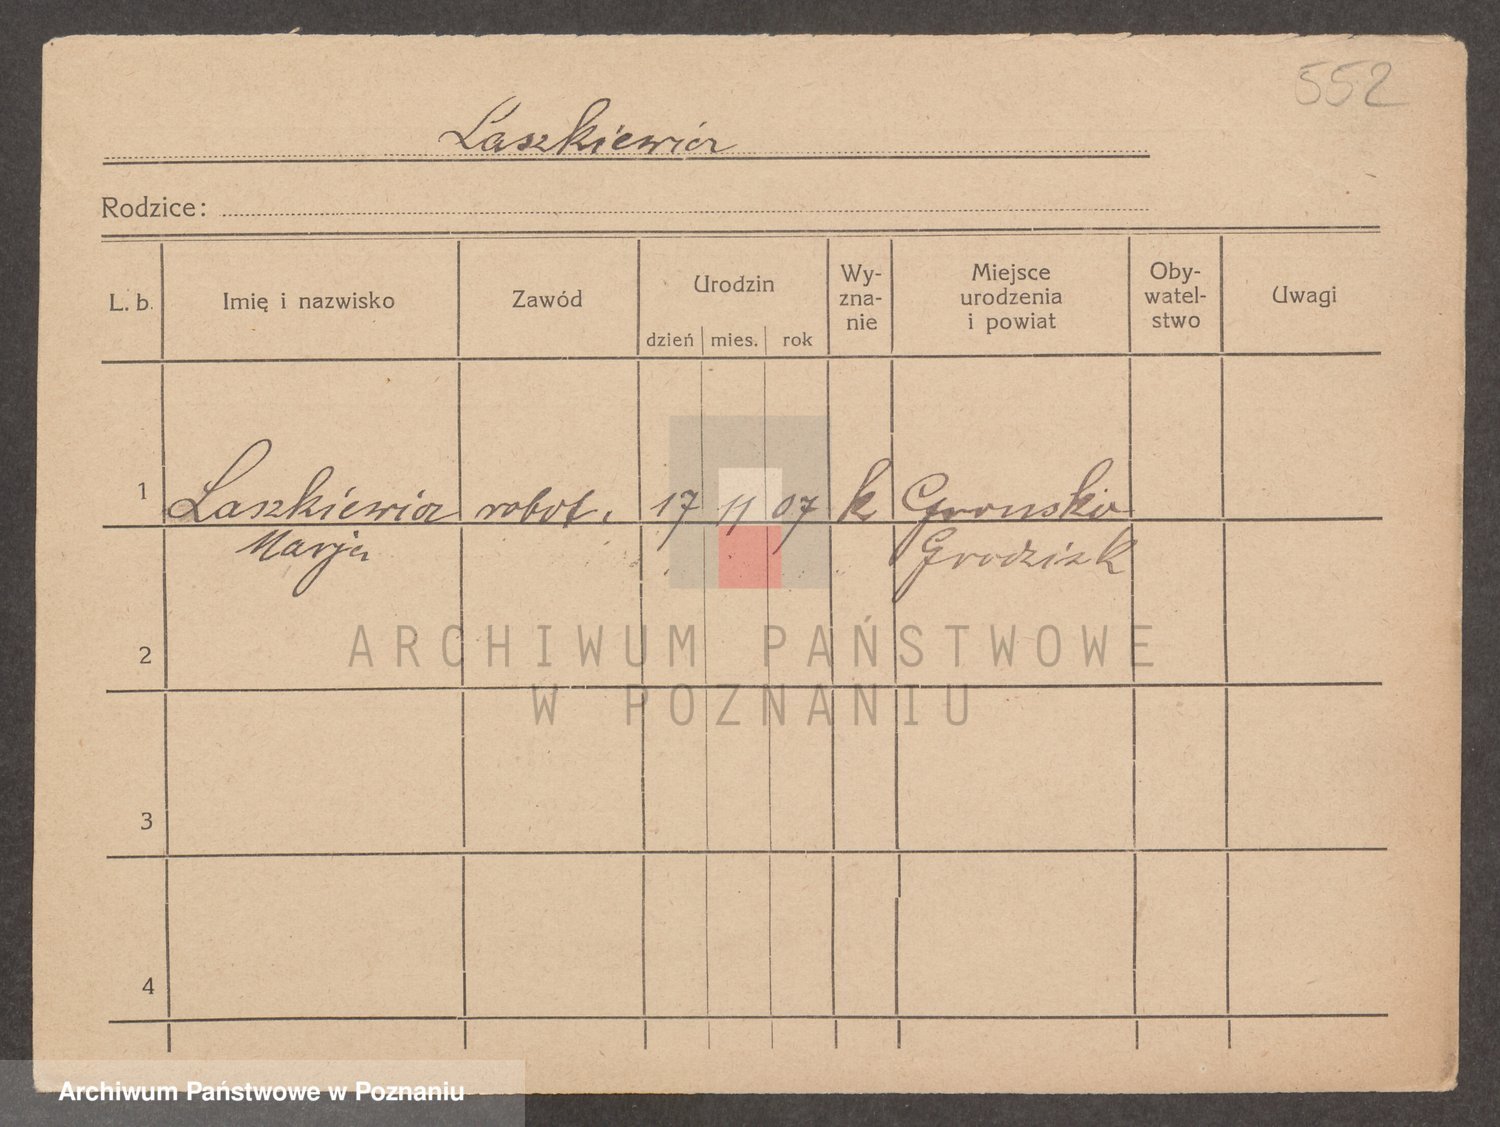 552
Laszkiewicz
Rodzice:
L. b. Imię i nazwisko Zawód Urodzin dzień mies. rok Wy-zna-nie Miejsce urodzenia i powiat Oby-watel-stwo Uwagi
1 Laszkiewicz robot. 17 11 07 k Gronsko
Marja Grodzisk
2
3
4
ARCHIWUM PAŃSTWOWE
W POZNANIU
Archiwum Państwowe w Poznaniu